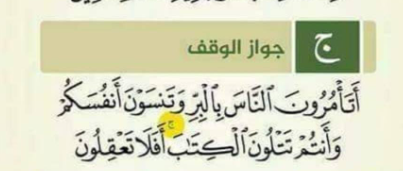 ج جواز الوقف
أَتَأْمُرُونَ ٱلنَّاسَ بِٱلْبِرِّ وَتَنسَوْنَ أَنفُسَكُمْ
وَأَنتُمْ تَتْلُونَ ٱلْكِتَٰبَ ۚ أَفَلَا تَعْقِلُونَ